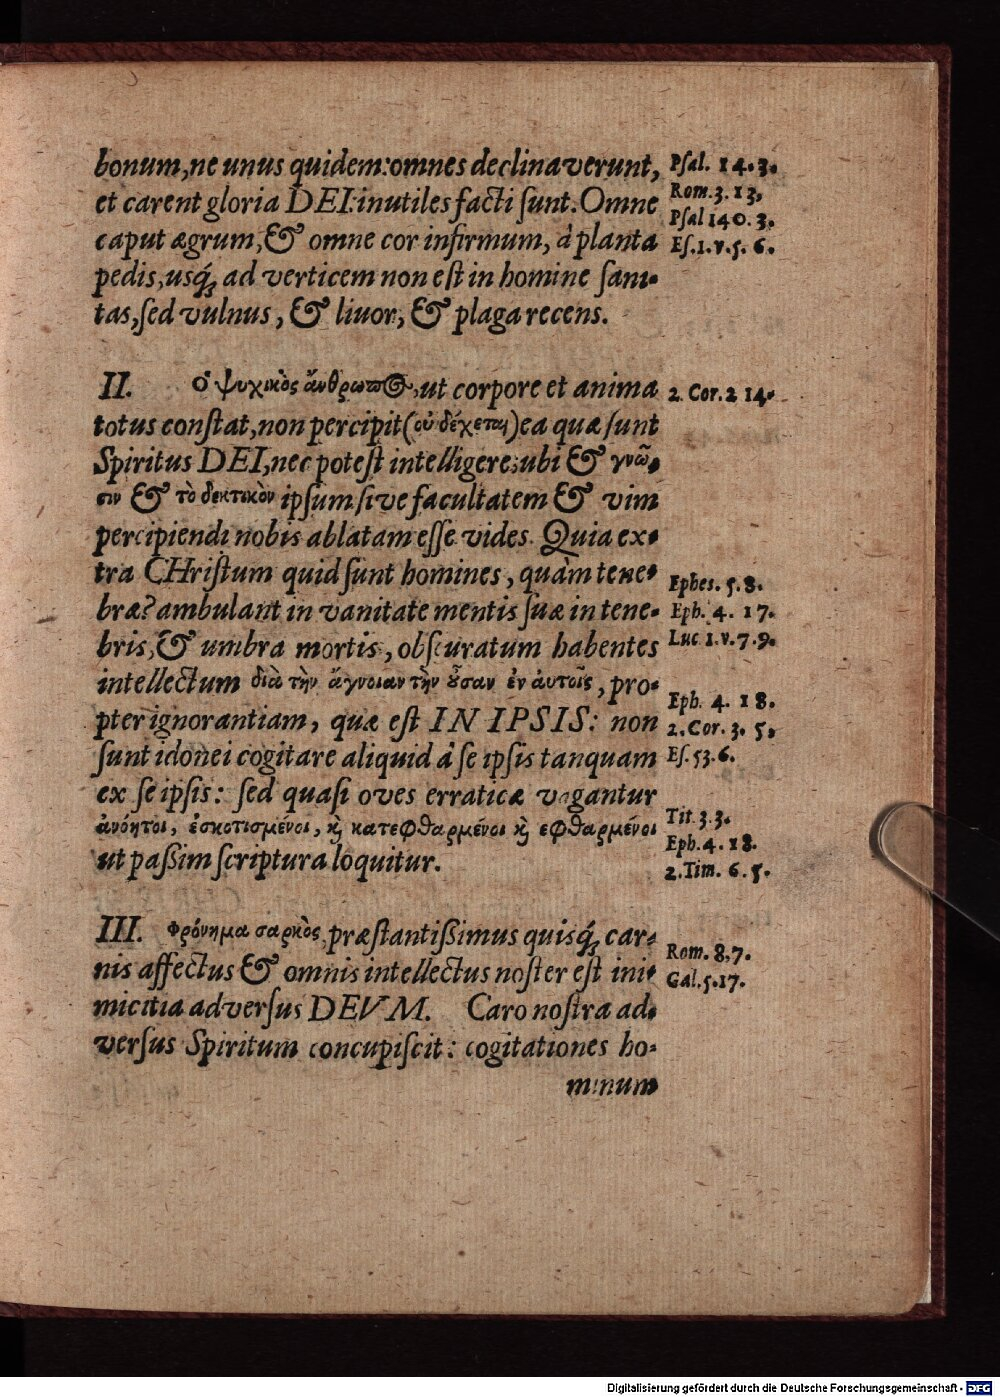 bonum, ne unus quidem: omnes declinaverunt,
et carent gloria DEI: inutiles facti sunt. Omne
caput ægrum, & omne cor infirmum, à planta
pedis, usq́; ad verticem non est in homine sani-
tas, sed vulnus, & livor, & plaga recens.
Psal. 14. 3.
Rom. 3. 13,
Psal 140. 3.
Es. 1. v. 5. 6.
II. Ὁ ψυχικὸς ἄνθρωπος, ut corpore et anima
totus constat, non percipit (οὐ δέχεται) ea quæ sunt
Spiritus DEI, nec potest intelligere: ubi & γνῶ-
σιν & τὸ δεκτικὸν ipsum sive facultatem & vim
percipiendi nobis ablatam esse vides. Quia ex-
tra CHristum quid sunt homines, quàm tene-
bræ? ambulant in vanitate mentis suæ in tene-
bris, & umbra mortis, obscuratum habentes
intellectum διὰ τὴν ἄγνοιαν τὴν οὖσαν ἐν ἀυτοῖς, pro-
pter ignorantiam, quæ est IN IPSIS: non
sunt idonei cogitare aliquid à se ipsis tanquam
ex se ipsis: sed quasi oves erraticæ vagantur
ἀνόητοι, ἐσκοτισμένοι, κὶ κατεφθαρμένοι κὶ εφθαρμένοι
ut passim scriptura loquitur.
2. Cor. 2 14.
Ephes. 5. 8.
Eph. 4. 17.
Luc 1. v. 7. 9.
Eph. 4. 18.
2. Cor. 3. 5.
Es. 53. 6.
Tit. 3. 3.
Eph. 4. 18.
2. Tim. 6. 5.
III. Φρόνημα σαρκὸς, præstantissimus quisq́; car-
nis affectus & omnis intellectus noster est ini-
micitia adversus DEVM. Caro nostra ad-
versus Spiritum concupiscit: cogitationes ho-
minum
Rom. 8. 7.
Gal. 5. 17.
Digitalisierung gefördert durch die Deutsche Forschungsgemeinschaft - DFG